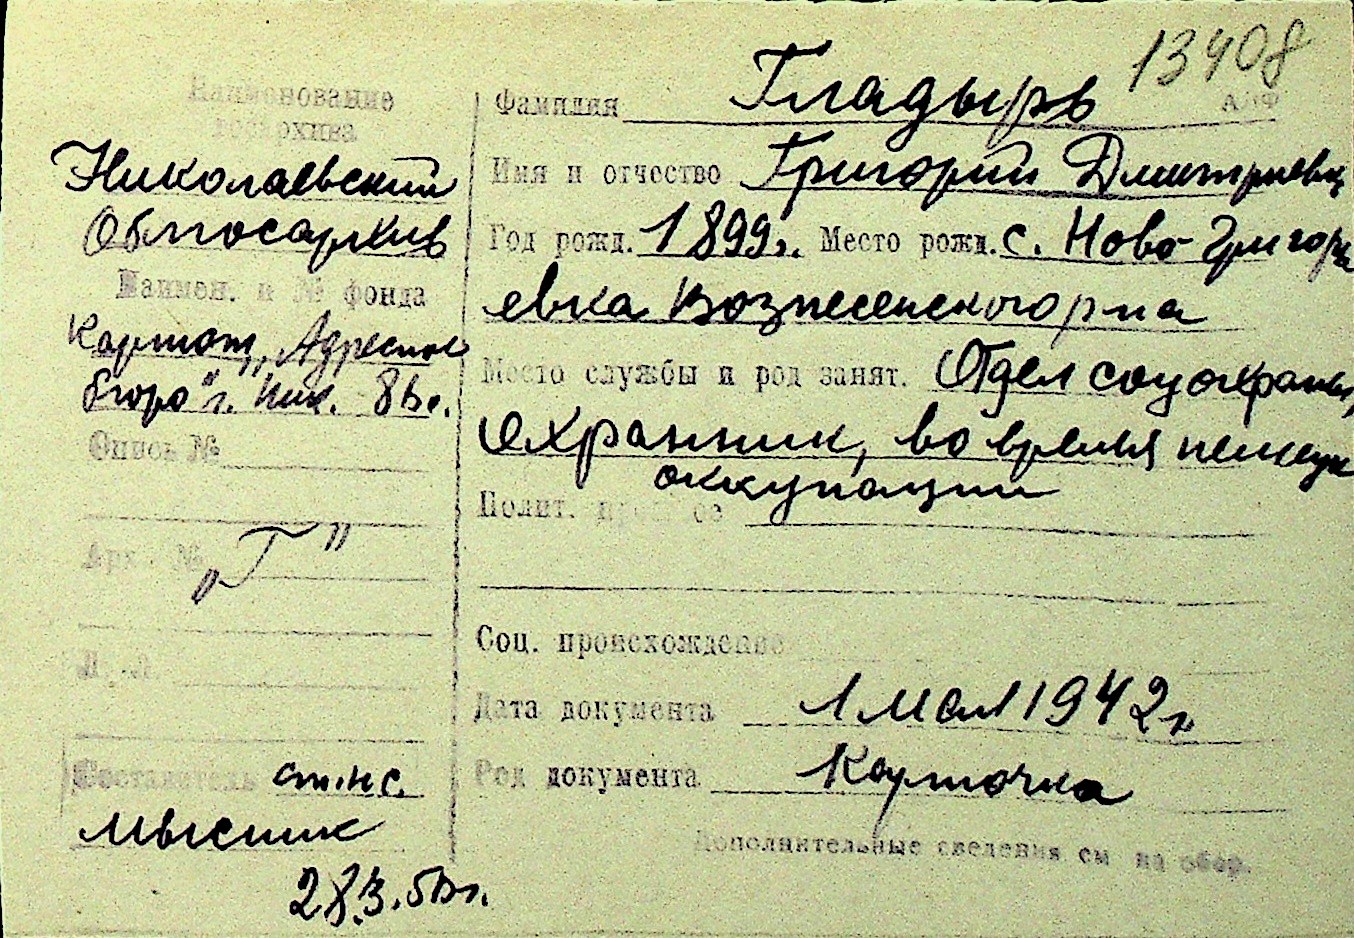 13408
Наименование
госархива
Николаевский
Облгосархив
Наимен. и № фонда
Картот. „Адресное
бюро" г. Ник.
Опись №
Арх. №
„Г"
Составитель ст.н.с.
мысник
28.3.
Фамилия Гладырь
Имя и отчество Григорий Дмитриевич
Год рожд. 1899г. Место рожд. с. Ново-Григорь
евка Вознесенского р-на
Место службы и род занят. Отдел соцохраны,
охранник, во время немецк
оккупации
Полит.
Соц. происхождение
Дата документа 1 мая 1942 г.
Род документа Карточка
Дополнительные сведения см на обор.